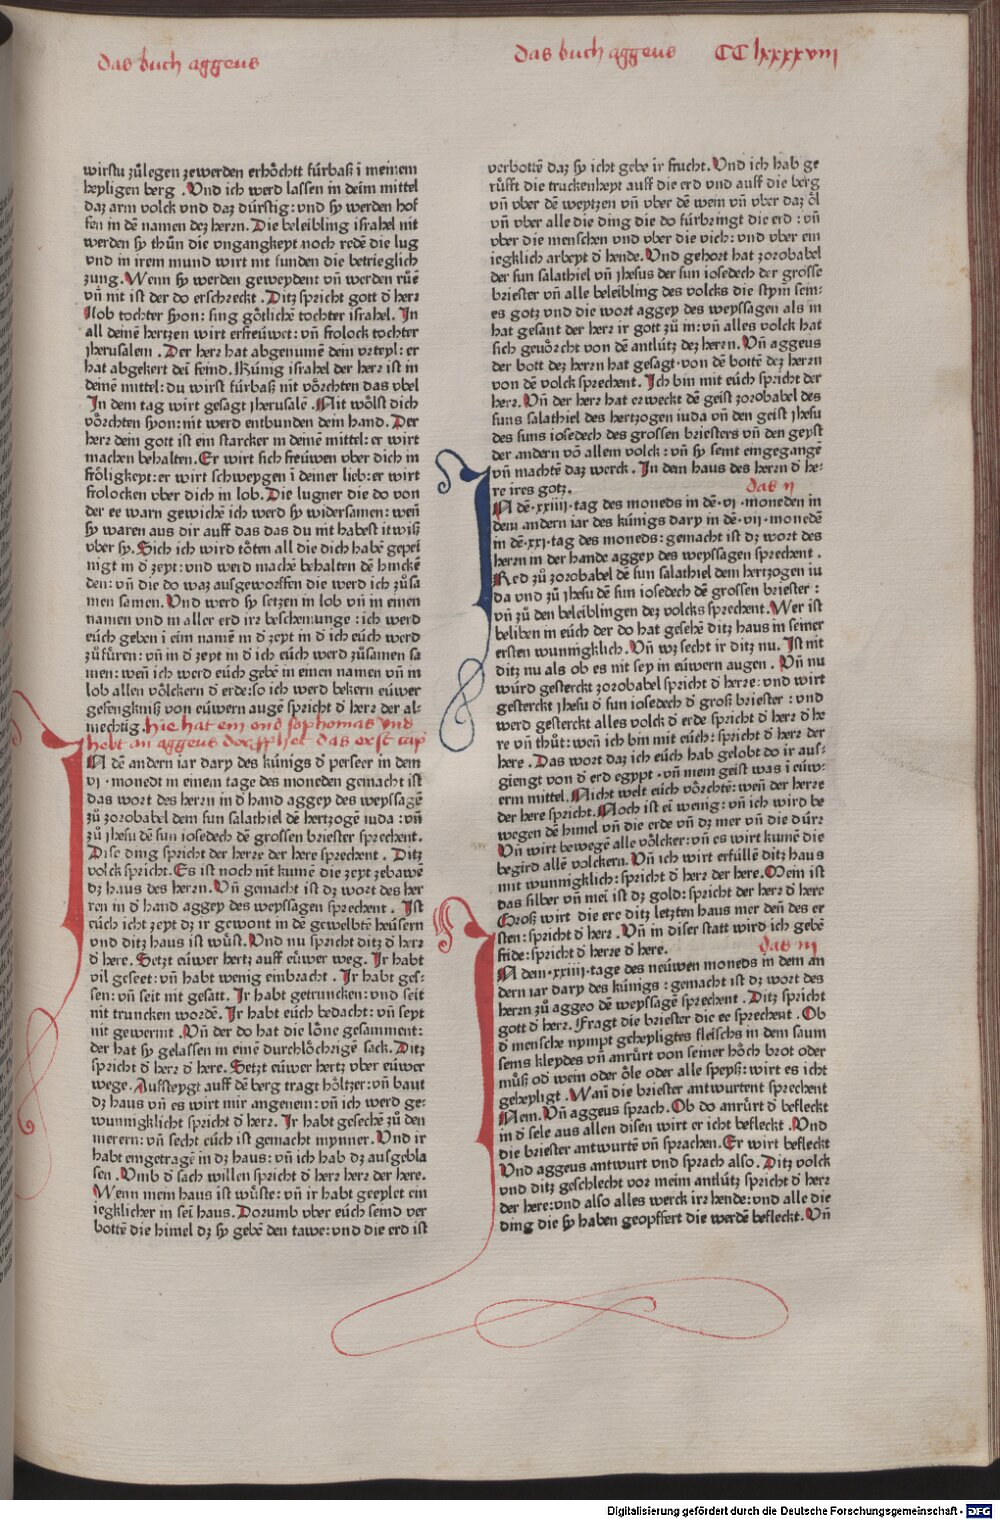 das buch aggeus
das buch aggeus CClxxxxviij
wirstu zůlegen zewerden erhöchtt fúrbaß ĩ meinem
heyligen berg .Vnd ich werd lassen in deim mittel
daz arm volck vnd daz dúrstig: vnd sy werden hof
fen in dẽ namen dez herrn. Die beleibling israhel nit
werden sy thůn die vngangkeyt noch redẽ die lug
vnd in irem mund wirt nit funden die betrieglich
zung. Wenn sy werden geweydent vñ werden rúẽ
vñ nit ist der do erschreckt . Ditz spricht gott d̕ herr
Lob tochter syon: sing götlichẽ tochter israhel. In
all deinẽ hertzen wirt erfreúwet: vñ frolock tochter
jherusalem . Der herr hat abgenumẽ dein vrteyl: er
hat abgekert deĩ feind. Kúnig israhel der herr ist in
deinẽ mittel: du wirst fúrbaß nit vörchten das vbel
In dem tag wirt gesagt jherusalẽ. Nit wölst dich
vörchten syon: nit werd entbunden dein hand. Der
herr dein gott ist ein starcker in deinẽ mittel: er wirt
machen behalten. Er wirt sich freúwen vber dich in
fröligkeyt: er wirt schweygen ĩ deiner lieb: er wirt
frolocken vber dich in lob. Die lugner die do von
der ee warn gewichẽ ich werd sy widersamen: weñ
sy waren aus dir auff das das du nit habest itwiß
vber sy. Sich ich wird töten all die dich habẽ gepei
nigt in d̕ zeyt: vnd werd machẽ behalten dẽ hinckẽ
den: vñ die do waz ausgeworffen die werd ich zůsa
men samen. Vnd werd sy setzen in lob vñ in einen
namen vnd in aller erd irr beschemunge: ich werd
eúch geben ĩ eim namẽ in d̕ zeyt in d̕ ich eúch werd
zůfúren: vñ in d̕ zeyt in d̕ ich eúch werd zůsamen sa
men: weñ ich werd eúch gebẽ in einen namen vñ in
lob allen völckern d̕ erde: so ich werd bekern eúwer
gefengkniß von eúwern augẽ spricht d̕ herr der al-
mechtig. hie hat ein end sophonias vnd
hebt an aggeus der pphet das erst cap̃
IN dẽ andern iar dary des kúnigs d̕ perseer in dem
vj . monedt in einem tage des moneden gemacht ist
das wort des herrn in d̕ hand aggey des weyssagẽ
zů zorobabel dem sun salathiel dẽ hertzogẽ iuda : vñ
zů jhesu dẽ sun iosedech dẽ grossen briester sprechent.
Dise ding spricht der herre der here sprechent . Ditz
volck spricht. Es ist noch nit kumẽ die zeyt zebawẽ
dz haus des herrn. Vñ gemacht ist dz wort des her
ren in d̕ hand aggey des weyssagen sprechent . Ist
eúch icht zeyt dz ir gewont in dẽ gewelbtẽ heúsern
vnd ditz haus ist wúst. Vnd nu spricht ditz d̕ herr
d̕ here. Setzt eúwer hertz auff eúwer weg. Ir habt
vil geseet: vñ habt wenig einbracht . Ir habt ges-
sen: vñ seit nit gesatt. Ir habt getruncken: vnd seit
nit truncken wordẽ. Ir habt eúch bedacht: vñ seyt
nit gewermt .Vñ der do hat die lőne gesamment:
der hat sy gelassen in einẽ durchlöchrigẽ sack. Ditz
spricht d̕ herr d̕ here. Setzt eúwer hertz vber eúwer
wege. Aufsteygt auff dẽ berg tragt höltzer: vñ baut
dz haus vñ es wirt mir angenem: vñ ich werd ge-
wunnigklicht spricht d̕ herr. Ir habt gesechẽ zů den
merern: vñ secht eúch ist gemacht mynner. Vnd ir
habt eingetragẽ in dz haus: vñ ich hab dz ausgebla
sen .Vmb d̕ sach willen spricht d̕ herr herr der here.
Wenn mein haus ist wúste: vñ ir habt geeylet ein
iegklicher in seĩ haus. Dorumb vber eúch seind ver
bottẽ die himel dz sy gebẽ den tawe: vnd die erd ist
verbottẽ daz sy icht gebe ir frucht. Vnd ich hab ge
růfft die truckenheyt auff die erd vnd auff die berg
vñ vber dẽ weytzen vñ vber dẽ wein vñ vber daz öl
vñ vber alle die ding die do fúrbringt die erd : vñ
vber die menschen vnd vber die vich: vnd vber ein
iegklich arbeyt d̕ hende. Vnd gehort hat zorobabel
der sun salathiel vñ jhesus der sun iosedech der grosse
briester vñ alle beleibling des volcks die stym sein-
es gotz vnd die wort aggey des weyssagen als in
hat gesant der herr ir gott zů in: vñ alles volck hat
sich geuörcht von dẽ antlútz dez herrn. Vñ aggeus
der bott dez herrn hat gesagt · von dẽ bottẽ dez herrn
von dẽ volck sprechent. Ich bin mit eúch spricht der
herr. Vñ der herr hat erweckt dẽ geist zorobabel des
suns salathiel des hertzogen iuda vñ den geist jhesu
des suns iosedech des grossen briesters vñ den geyst
der andern võ allem volck : vñ sy seint eingegangẽ
vñ machtẽ daz werck. In dem haus des herrn d̕ he-
re ires gotz. das ij
IN dẽ · xxiiij · tag des moneds in dẽ · vj · moneden in
dem andern iar des kúnigs dary in dẽ · vij · monedẽ
in dẽ · xxj · tag des moneds: gemacht ist dz wort des
herrn in der hande aggey des weyssagen sprechent .
Red zů zorobabel dẽ sun salathiel dem hertzogen iu
da vnd zů jhesu dẽ sun iosedech dẽ grossen briester :
vñ zů den beleiblingen dez volcks sprechent. Wer ist
beliben in eúch der do hat gesehẽ ditz haus in seiner
ersten wunnigklich. Vñ wz secht ir ditz nu. Ist nit
ditz nu als ob es nit sey in eúwern augen . Vñ nu
wúrd gesterckt zorobabel spricht d̕ herre: vnd wirt
gesterckt jhesu d̕ sun iosedech d̕ groß briester : vnd
werd gesterckt alles volck d̕ erde spricht d̕ herr d̕ he
re vñ thůt: weñ ich bin mit eúch: spricht d̕ herr der
here . Das wort daz ich eúch hab gelobt do ir aus-
giengt von d̕ erd egypt · vñ mein geist was ĩ eúw-
erm mittel. Nicht welt eúch vörchtẽ: weñ der herre
der here spricht. Noch ist eĩ wenig: vñ ich wird be
wegen dẽ himel vñ die erde vñ dz mer vñ die dúrr
Vñ wirt bewegẽ alle völcker: vñ es wirt kumẽ die
begird allẽ völckern. Vñ ich wirt erfúllẽ ditz haus
mit wunnigklich: spricht d̕ herr der here. Mein ist
das silber vñ meĩ ist dz gold: spricht der herr d̕ here
Groß wirt die ere ditz letzten haus mer deñ des er
sten: spricht d̕ herr . Vñ in diser statt wird ich gebẽ
fride: spricht d̕ herre d̕ here. das iij
IN dem · xxiiij · tage des neúwen moneds in dem an
dern iar dary des kúnigs : gemacht ist dz wort des
herrn zů aggeo dẽ weyssagẽ sprechent . Ditz spricht
gott d̕ herr. Fragt die briester die ee sprechent . Ob
d̕ mensche nympt geheyligtes fleischs in dem saum
seins kleydes vñ anrúrt von seiner höch brot oder
můß od̕ wein oder öle oder alle speyß: wirt es icht
geheyligt . Wañ die briester antwurtent sprechent
Nein. Vñ aggeus sprach. Ob do anrúrt d̕ befleckt
in d̕ sele aus allen disen wirt er icht befleckt .Vnd
die briester antwurtẽ vñ sprachen. Er wirt befleckt
Vnd aggeus antwurt vnd sprach also. Ditz volck
vnd ditz geschlecht vor meim antlútz spricht d̕ herr
der here: vnd also alles werck irr hende: vnd alle die
ding die sy haben geopffert die werdẽ befleckt. Vñ
Digitalisierung gefördert durch die Deutsche Forschungsgemeinschaft - DFG